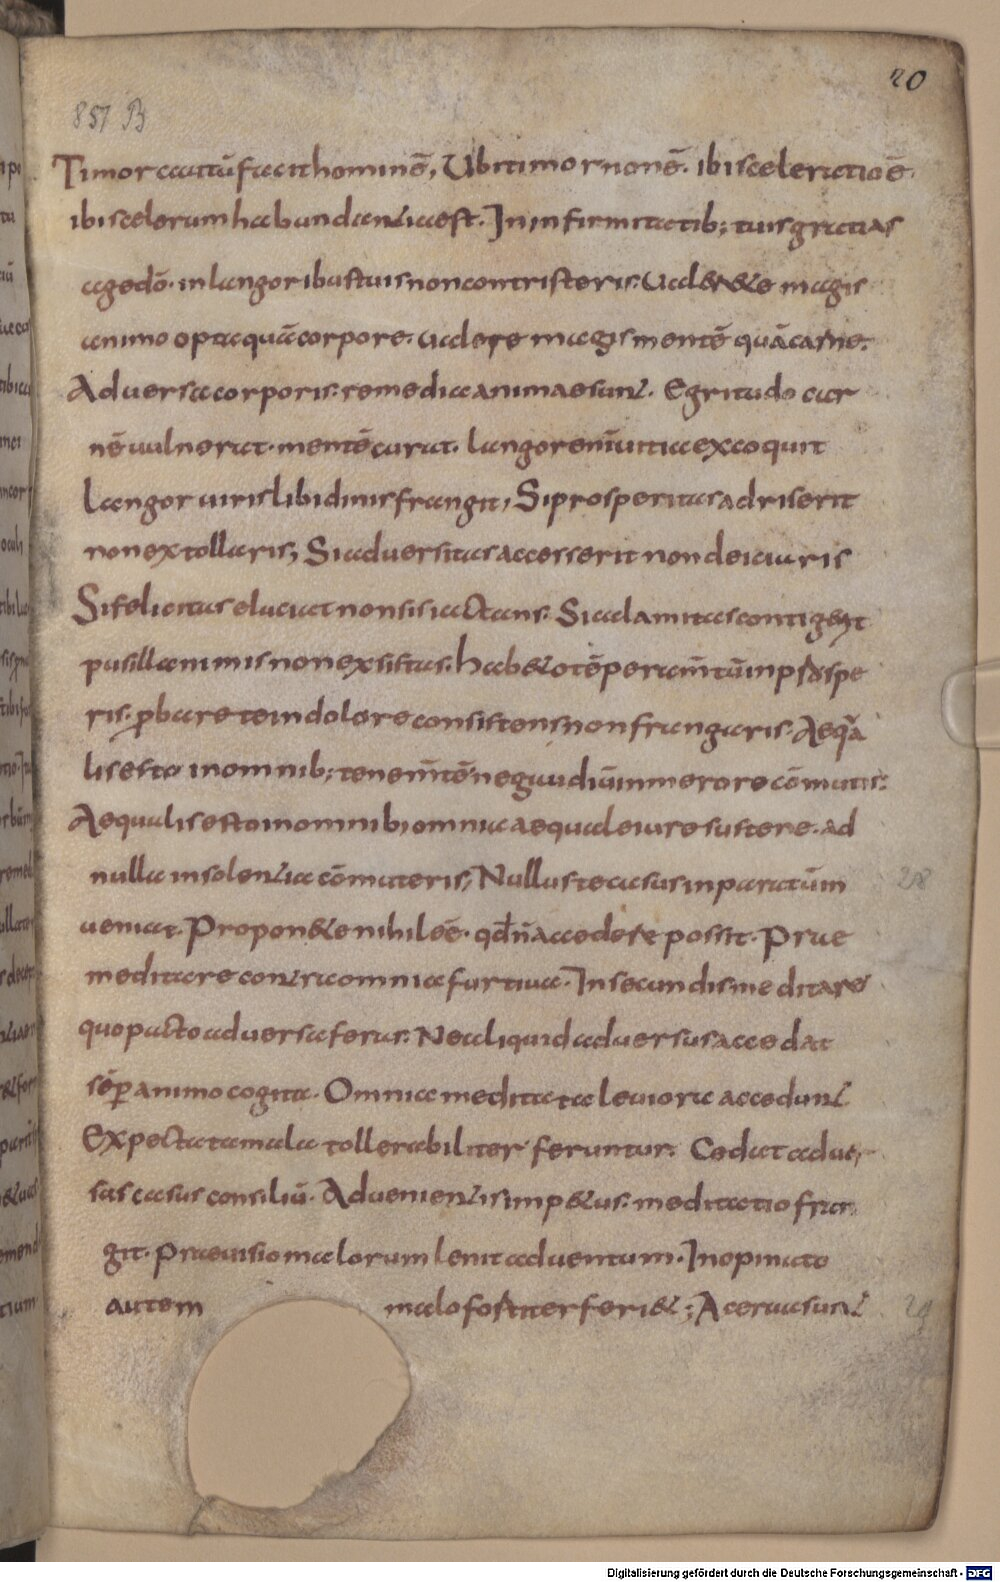 20
857 B
Timor cautū facit hominē, Ubi timor non ē. ibi sceleratio ē.
ibi scelerum habundantia est. In infirmitatib; tuis gratias
age dō. in langoribus tuis non contristeris. Ualere te magis
animo opta quā corpore. ualere magis mentē quā carne.
Aduersa corporis. remedia animae sunt. Egritudo car
nē uulnerat. mentē curat. langor enī uitia excoquit
langor uiris libidinis frangit, Si prosperitas adriserit
non extollaris; Si aduersitas accesserit non deiciaris
Si felicitas eluciat non sis iactans. Si calamitas contigerit
pusillanimis non exsistas. habeto tēperamtūm in prospe
ris. p̱bare te in dolore consistens non frangaris. Aequa
lis esto in omnib; tene mtē neq; gaudiū in merore cōmutes.
Aequalis esto in omnibi omnia aequale iure sustere. ad
nulla insolentia cōmuteris; Nullus te casus inparatūm
ueniat. Propone nihil eē. qđ n̄ accedere possit. Prae
meditare contra omnia furtiua. In secundis meditare
quo pacto aduersa feras. Ne aliquid aduersus accedat
sēp̱ animo cogita. Omnia meditata leuiora accedunt
Expectata mala tollerabiliter feruntur. Cedat aduer
sus casus consiliū. Aduenientis impetus. meditatio fran
git. praeuisio malorum lenit aduentum. Inopinato
autem malo fortiter feriet; Acerua sunt
28
29
Digitalisierung gefördert durch die Deutsche Forschungsgemeinschaft - DFG